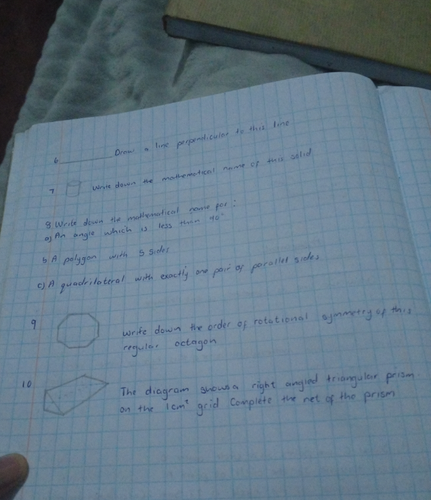 6. Draw a line perpendicular to this line
7 Write down the mathematical name of this solid
8 Write down the mathematical name for:
a) An angle which is less than 90°
b A polygon with 5 sides
c) A quadrilateral with exactly one pair of parallel sides
9 Write down the order of rotational symmetry of this
regular octagon
10 The diagram shows a right angled triangular prism
on the 1cm² grid Complete the net of the prism